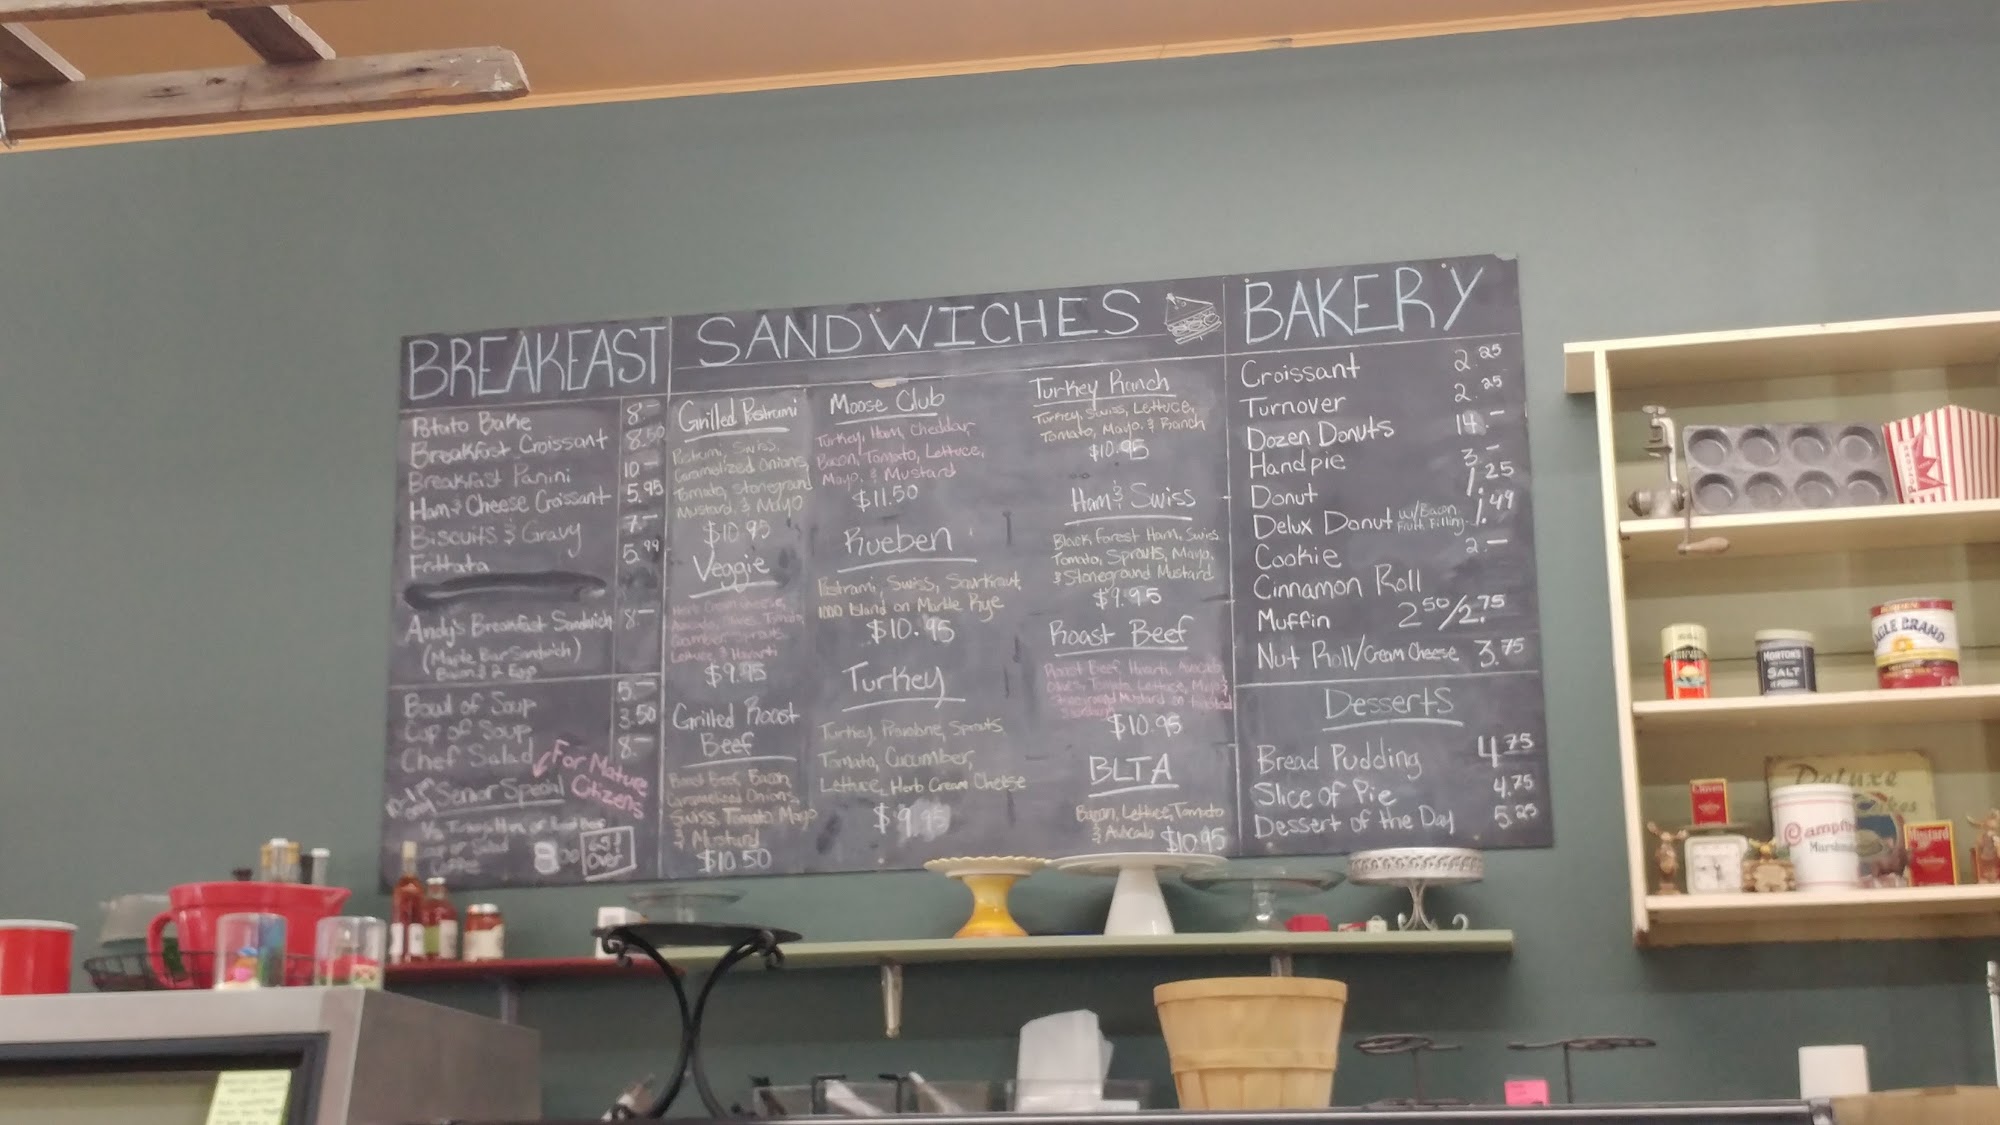 BREAKFAST
Potato Bake 8.-
Breakfast Croissant 8.50
Breakfast Panini 10-
Ham & Cheese Croissant 5.95
Biscuits & Gravy 7.-
Frittata 5.99
Andy's Breakfast Sandwich 8.-
(Maple Bar Sandwich)
Bacon & 2 Egg
Bowl of Soup 5.-
Cup of Soup 3.50
Chef Salad 8.-
For Mature
Citizens
Senior Special
8.00
65 &
Over
SANDWICHES
Grilled Pastrami
Pastrami, Swiss,
Caramelized Onions,
Tomato, Stoneground
Mustard, & Mayo
$10.95
Veggie
Herb Cream Cheese,
Lettuce & Havarti
$9.95
Grilled Roast
Beef
Roast Beef, Bacon,
Caramelized Onions,
Swiss, Tomato Mayo
& Mustard
$10.50
Moose Club
Turkey, Ham, Cheddar,
Bacon, Tomato, Lettuce,
Mayo, & Mustard
$11.50
Rueben
Pastrami, Swiss, Saurkraut,
1000 Island on Marble Rye
$10.95
Turkey
Turkey, Provolone, Sprouts
Tomato, Cucumber,
Lettuce, Herb Cream Cheese
$9.95
Turkey Ranch
Turkey, Swiss, Lettuce,
Tomato, Mayo, & Ranch
$10.95
Ham & Swiss
Black Forest Ham, Swiss
Tomato, Sprouts, Mayo,
& Stoneground Mustard
$9.95
Roast Beef
Roast Beef, Havarti, Avocado,
Olives, Tomato, Lettuce, Mayo &
Stoneground Mustard on
$10.95
BLTA
Bacon, Lettuce, Tomato
& Avocado $10.95
BAKERY
Croissant 2.25
Turnover 2.25
Dozen Donuts 14.-
Handpie 3.-
Donut 1.25
Delux Donut w/Bacon Fruit Filling 1.49
Cookie 2.-
Cinnamon Roll
Muffin 2.50/2.75
Nut Roll/Cream Cheese 3.75
Desserts
Bread Pudding 4.75
Slice of Pie 4.75
Dessert of the Day 5.25
Popcorn
MORTON'S
SALT
EAGLE BRAND
Deluxe
Campfire
Marshmallows
Mustard